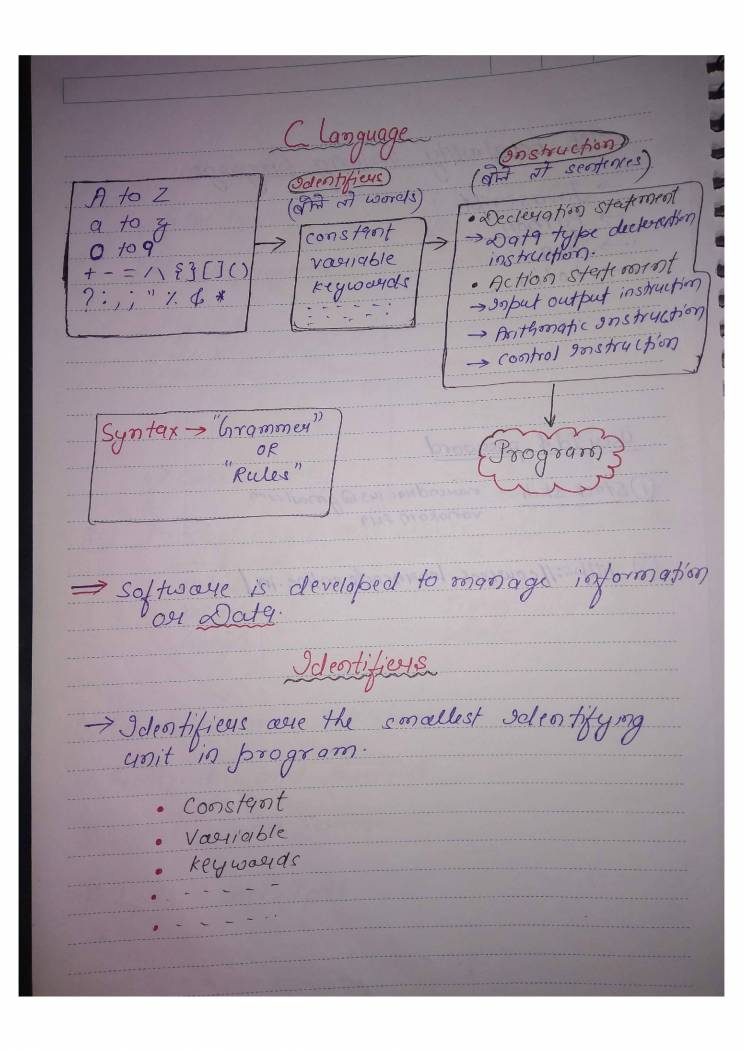 C language
A to Z
a to z
0 to 9
+ - = / \ { } [ ] ( )
? : , ; " % $ *
Identifiers
(बोले तो words)
constant
variable
keywards
- - - - -
- - - - -
Instruction
(बोले तो sentences)
• Decleration statement
→ Data type decleration
instruction.
• Action statement
→ Input output instruction
→ Arithmatic instruction
→ control instruction
Program
Syntax → "Grammer"
OR
"Rules"
⇒ Software is developed to manage information
or Data.
Identifiers
→ Identifiers are the smallest identifying
unit in program.
• Constant
• Variable
• keywords
• - - - - -
• - - - - -